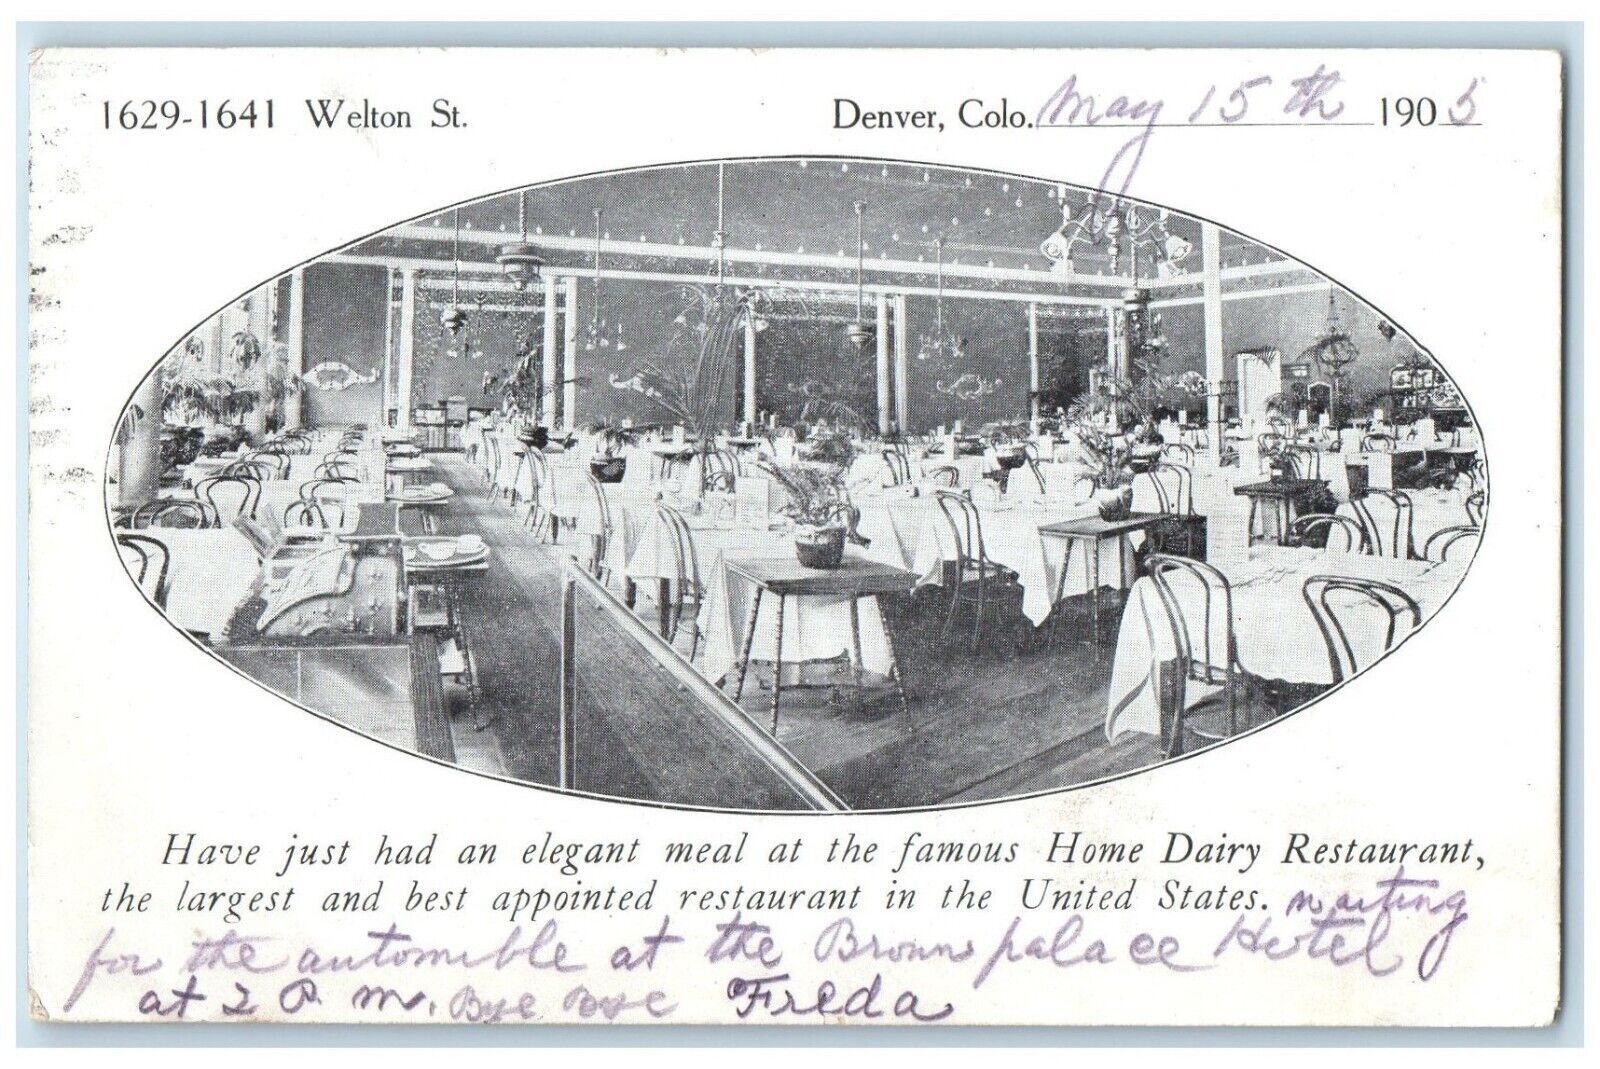 1629-1641 Welton St.
Denver, Colo. May 15th 1905
Have just had an elegant meal at the famous Home Dairy Restaurant,
the largest and best appointed restaurant in the United States. waiting
for the automoble at the Brown palace Hotel
at 2 P. m. Bye Bye Freda